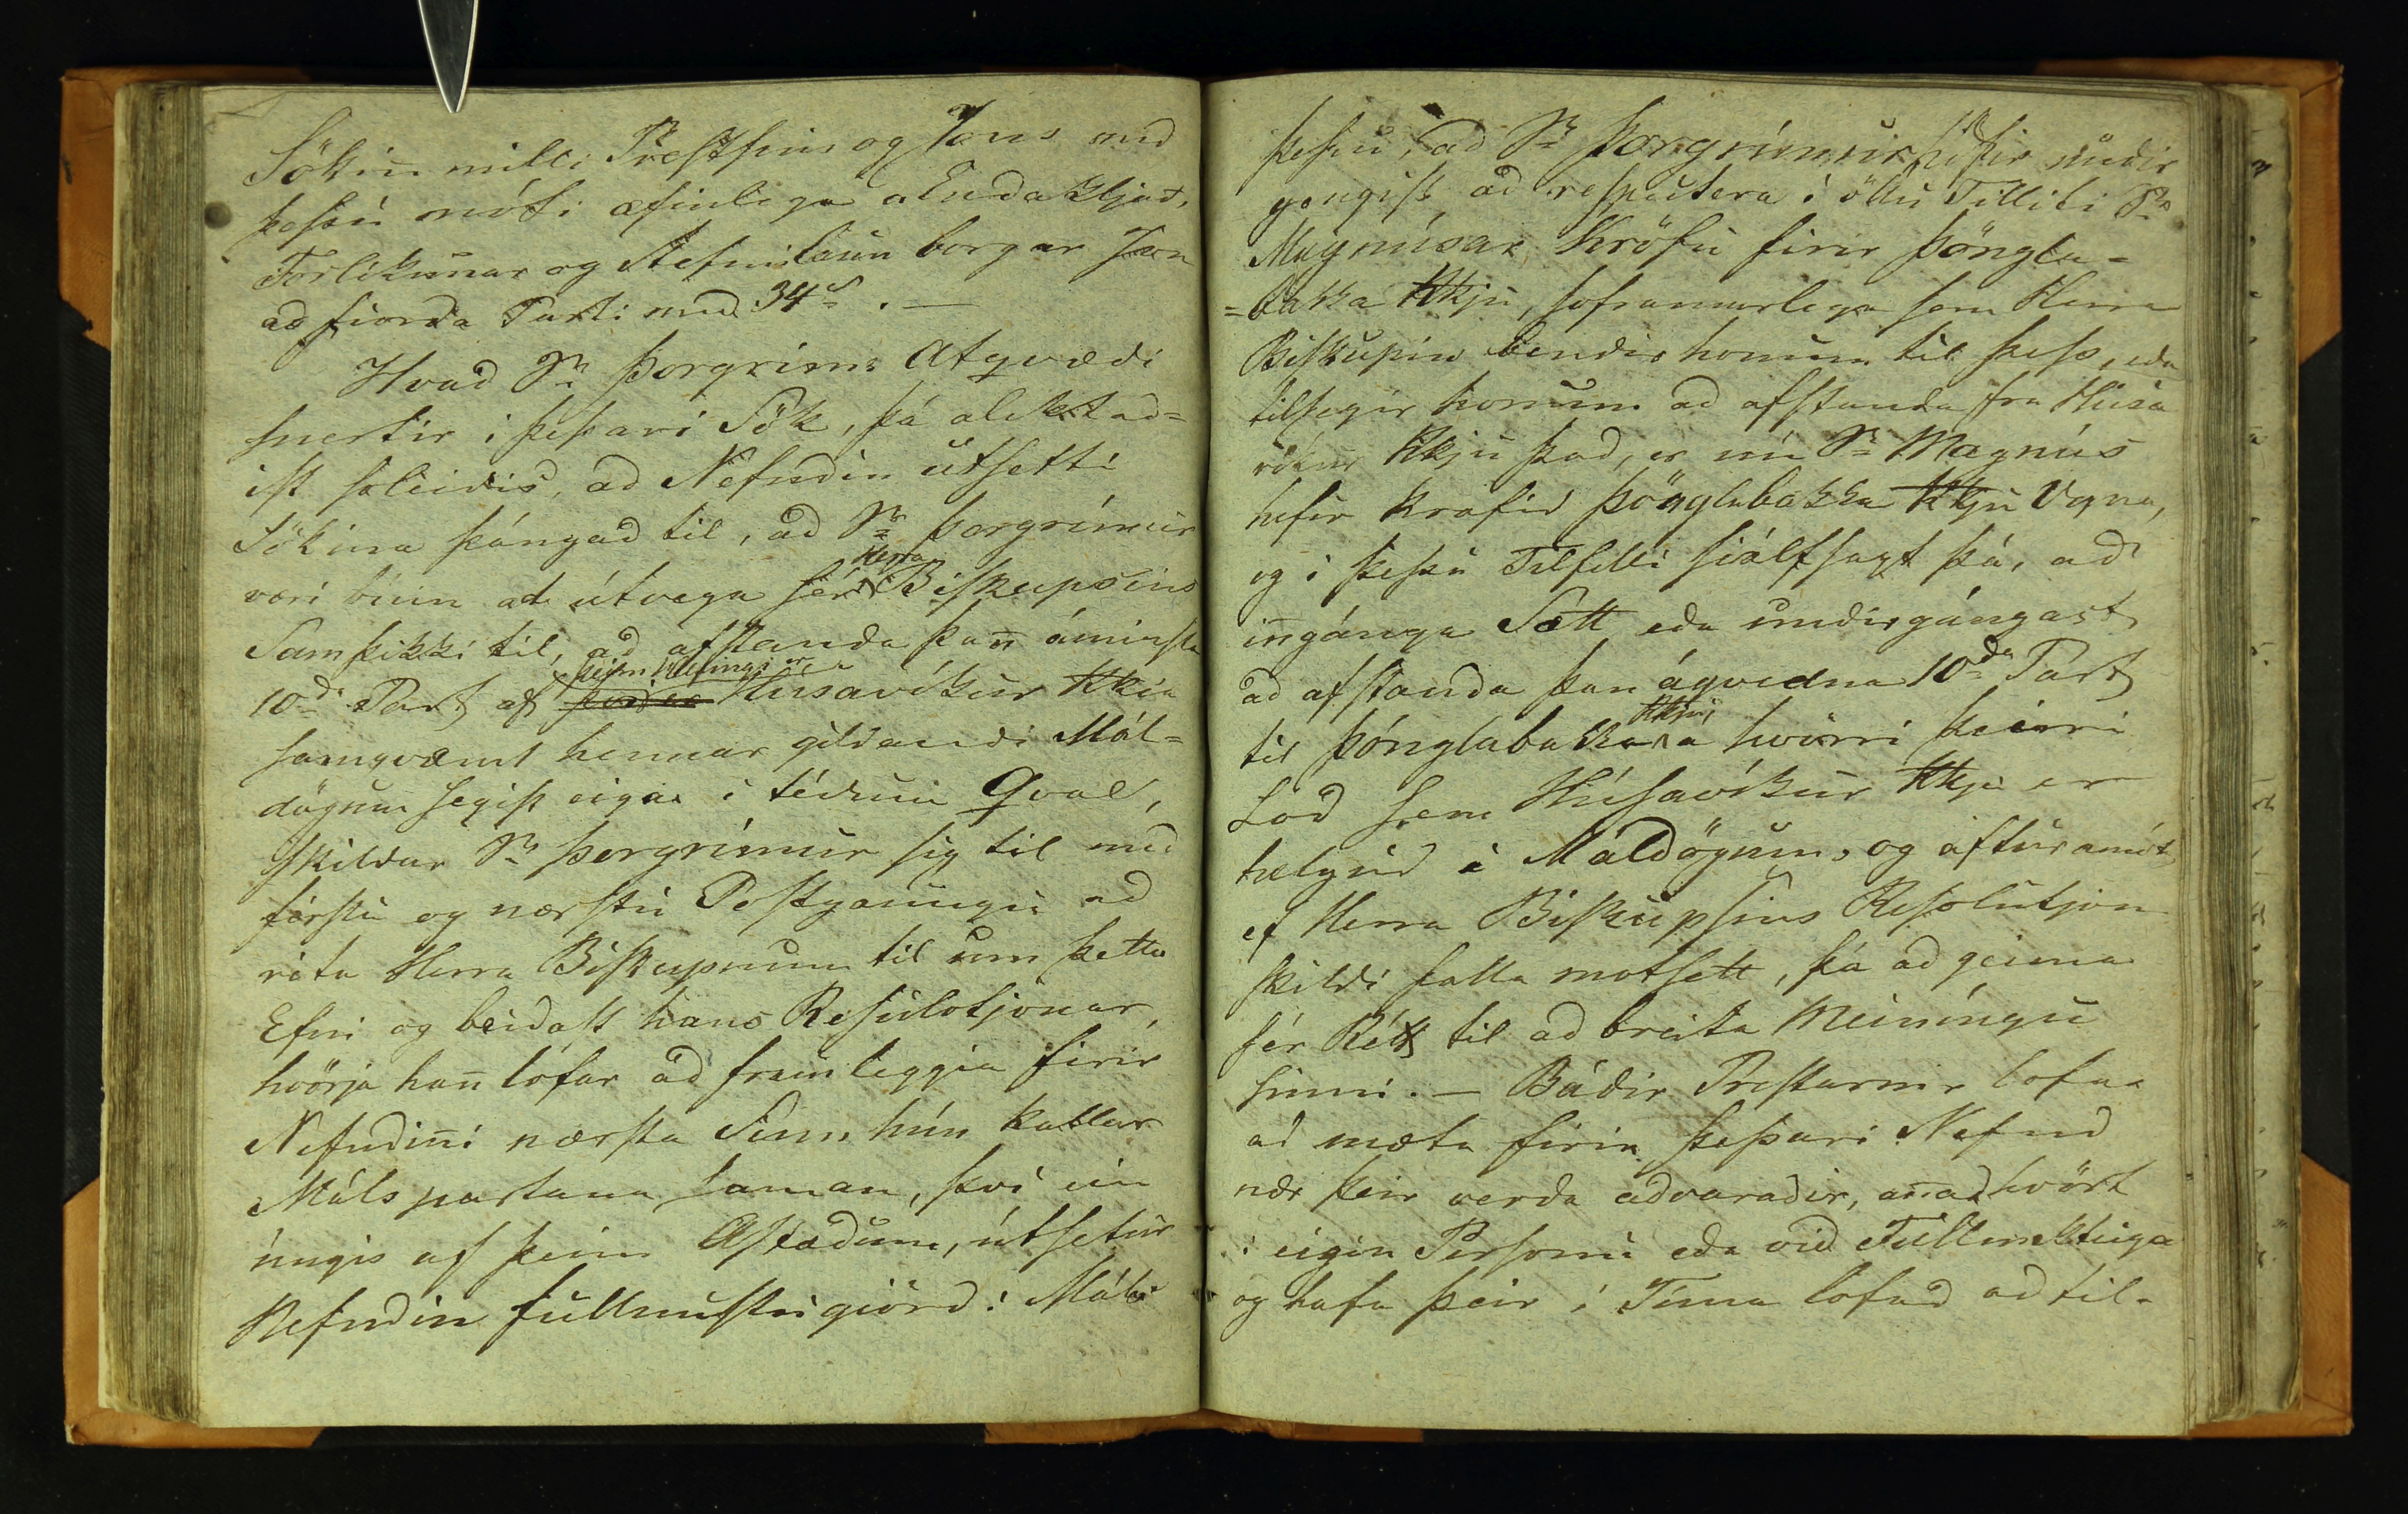 Sökin milli Prestsins og Jóns med
þessu móti æfinlega alenda kljád.
Forlikunar og Stefnulaun borgar Jon
ad fiorda Parti med 34 s. —
Hvad Sr Þorgrims Atqvædi
snertir i þessari Sök, þá aliktad=
ist soleidis, ad Nefndin útsetti
Sökina þángad til, ad Sr Þorgrímur
væri búin at útvega sér Herra Biskupsins
Samþikki til, ad afstanda þan áminsta
10da Part af þeim Húsavíkur Kkia
samqvæmt hennar gildandi Mál=
dögum segist eiga i tédum Qval,
Skildar Sr Þorgrímur sig til med
firstu og næstu Postgaungu ad
rita Herra Biskupnum til um þetta
Efni og beidast hans Resulotjónar,
hvörja han lofar ad framleggja firir
Nefndini næsta Sinn hún kallar
Málspartana saman, því ein
úngis af þeim Astædum, útsetur
Nefndin fullnustugiörd i Máli
þessu, ad Sr Þorgrímur hefir undir
gengist ad respectera i öllu Tilliti Sr
Magnúsar Kröfu firir Þöngla=
=bakka Kkju, soframarlega sem Herra
Biskupin bendir honum til þess, eda
tilsegir honum ad afstanda fra Húsa
víkur Kkju þad, er nú Sr Magnús
hefir krafid Þönglabakka Kkju Vegna,
og i þessu Tilfelli siálfsagt þá, ad
ingánga Sætt eda undirgángast
ad afstanda þan áqvedna 10da Part
til Þönglabakka Kkju, a hvörri þeirri
Lód sem Húsavíkur Kkju er
helgud i Máldögum, og aftur amót
ef Herra Biskupsins Resolutjon
skildi falla motsett, þá ad geima
sér Rétt til ad breita Meiníngu
sinni. — Bádir Prestarnir lofa
ad mæta firir þessari Nefnd
nær þeir verda advaradir, anadhvört
i eigin Persónu eda vid Fullmektuga
og hafa þeir i Tíma lofad ad til-